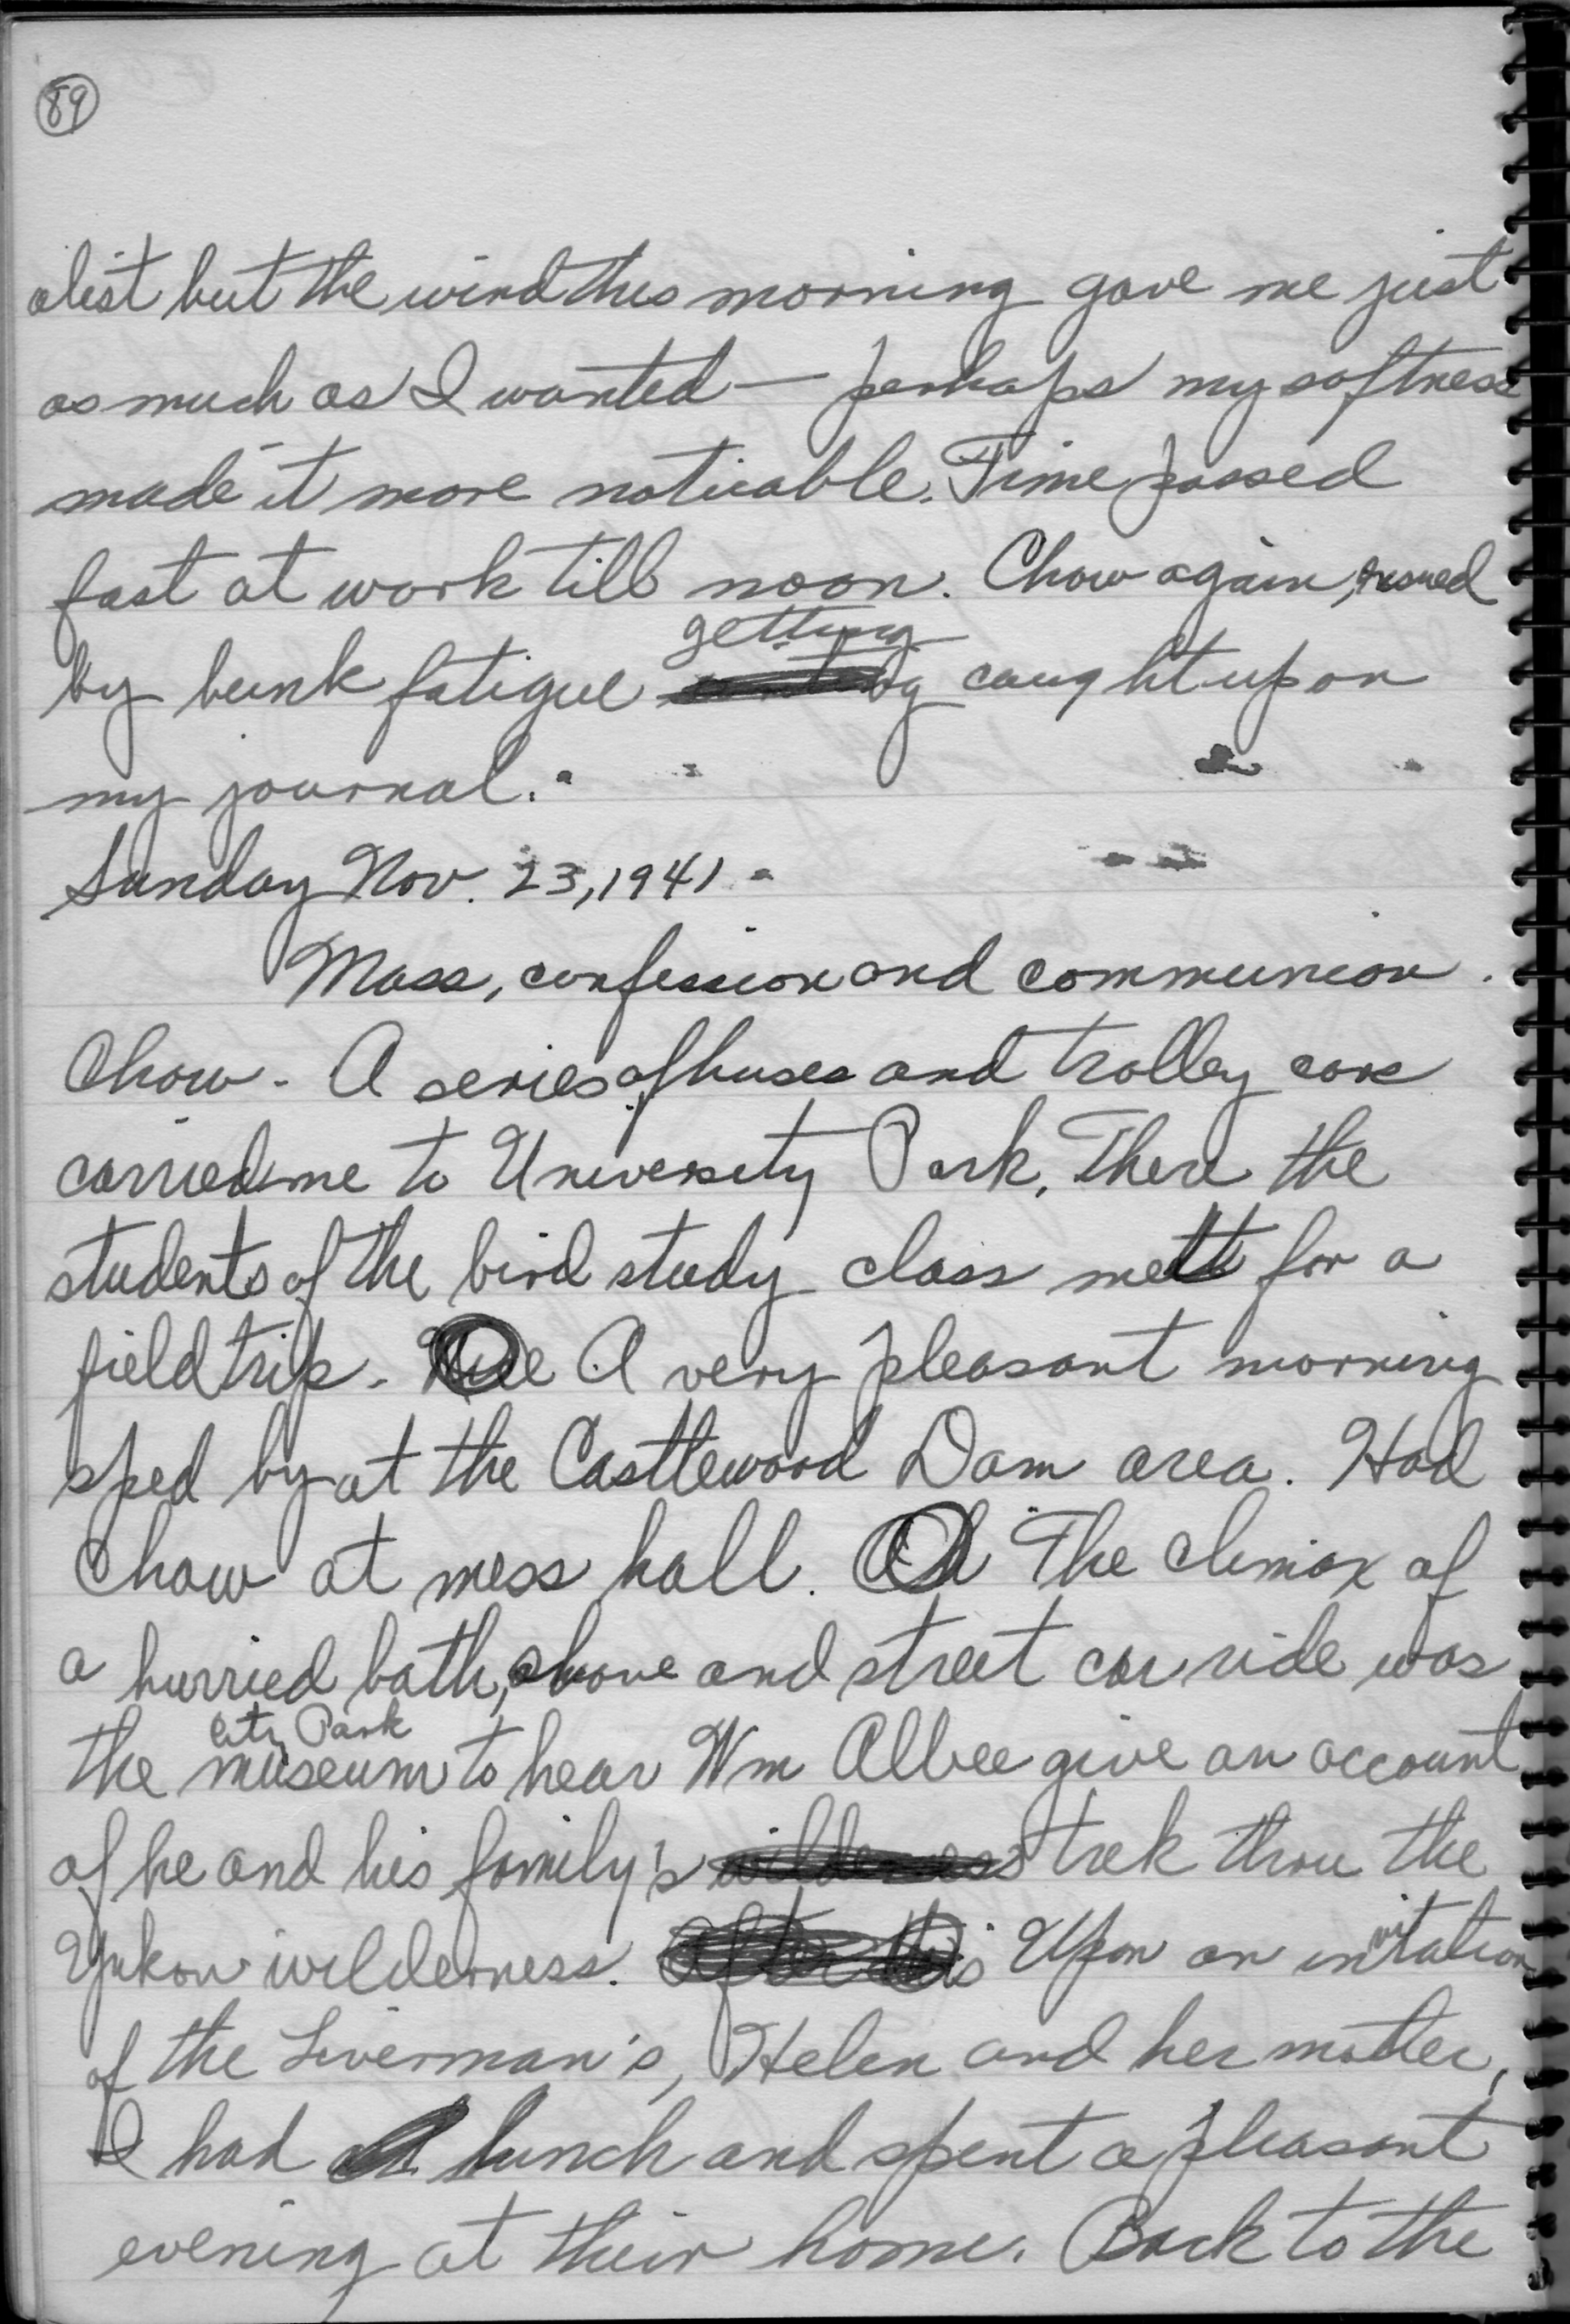 89
alist but the wind this morning gave me just
as much as I wanted — perhaps my softness
made it more noticable. Time passed
fast at work till noon. Chow again, ensued
getting
by bunk fatigue caught up on
my journal.
Sunday Nov. 23, 1941
Mass, confession and communion.
Chow - A series of buses and trolley cars
carried me to University Park. There the
students of the bird study class met for a
field trip. A very pleasant morning
sped by at the Castlewood Dam area. Had
Chow at mess hall. The climax of
a hurried bath, shave and street car ride was
City Park
the museum to hear Wm Albee give an account
of he and his family's wilderness trek thru the
Yukon wilderness. After this Upon an invitation
of the Liverman's, Helen and her mother,
I had lunch and spent a pleasant
evening at their home. Back to the